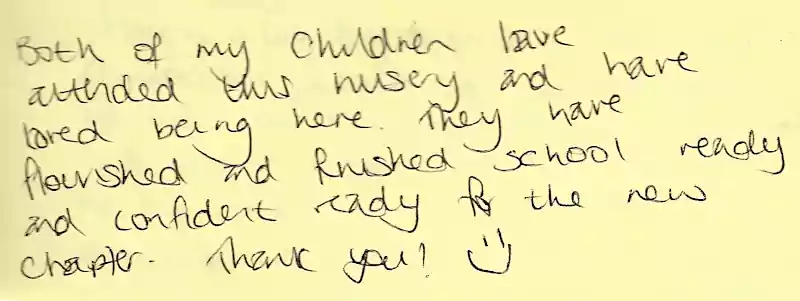 Both of my children have
attended this nusery and have
loved being here. They have
flourished and finished school ready
and confident ready for the new
chapter. Thank you! :)